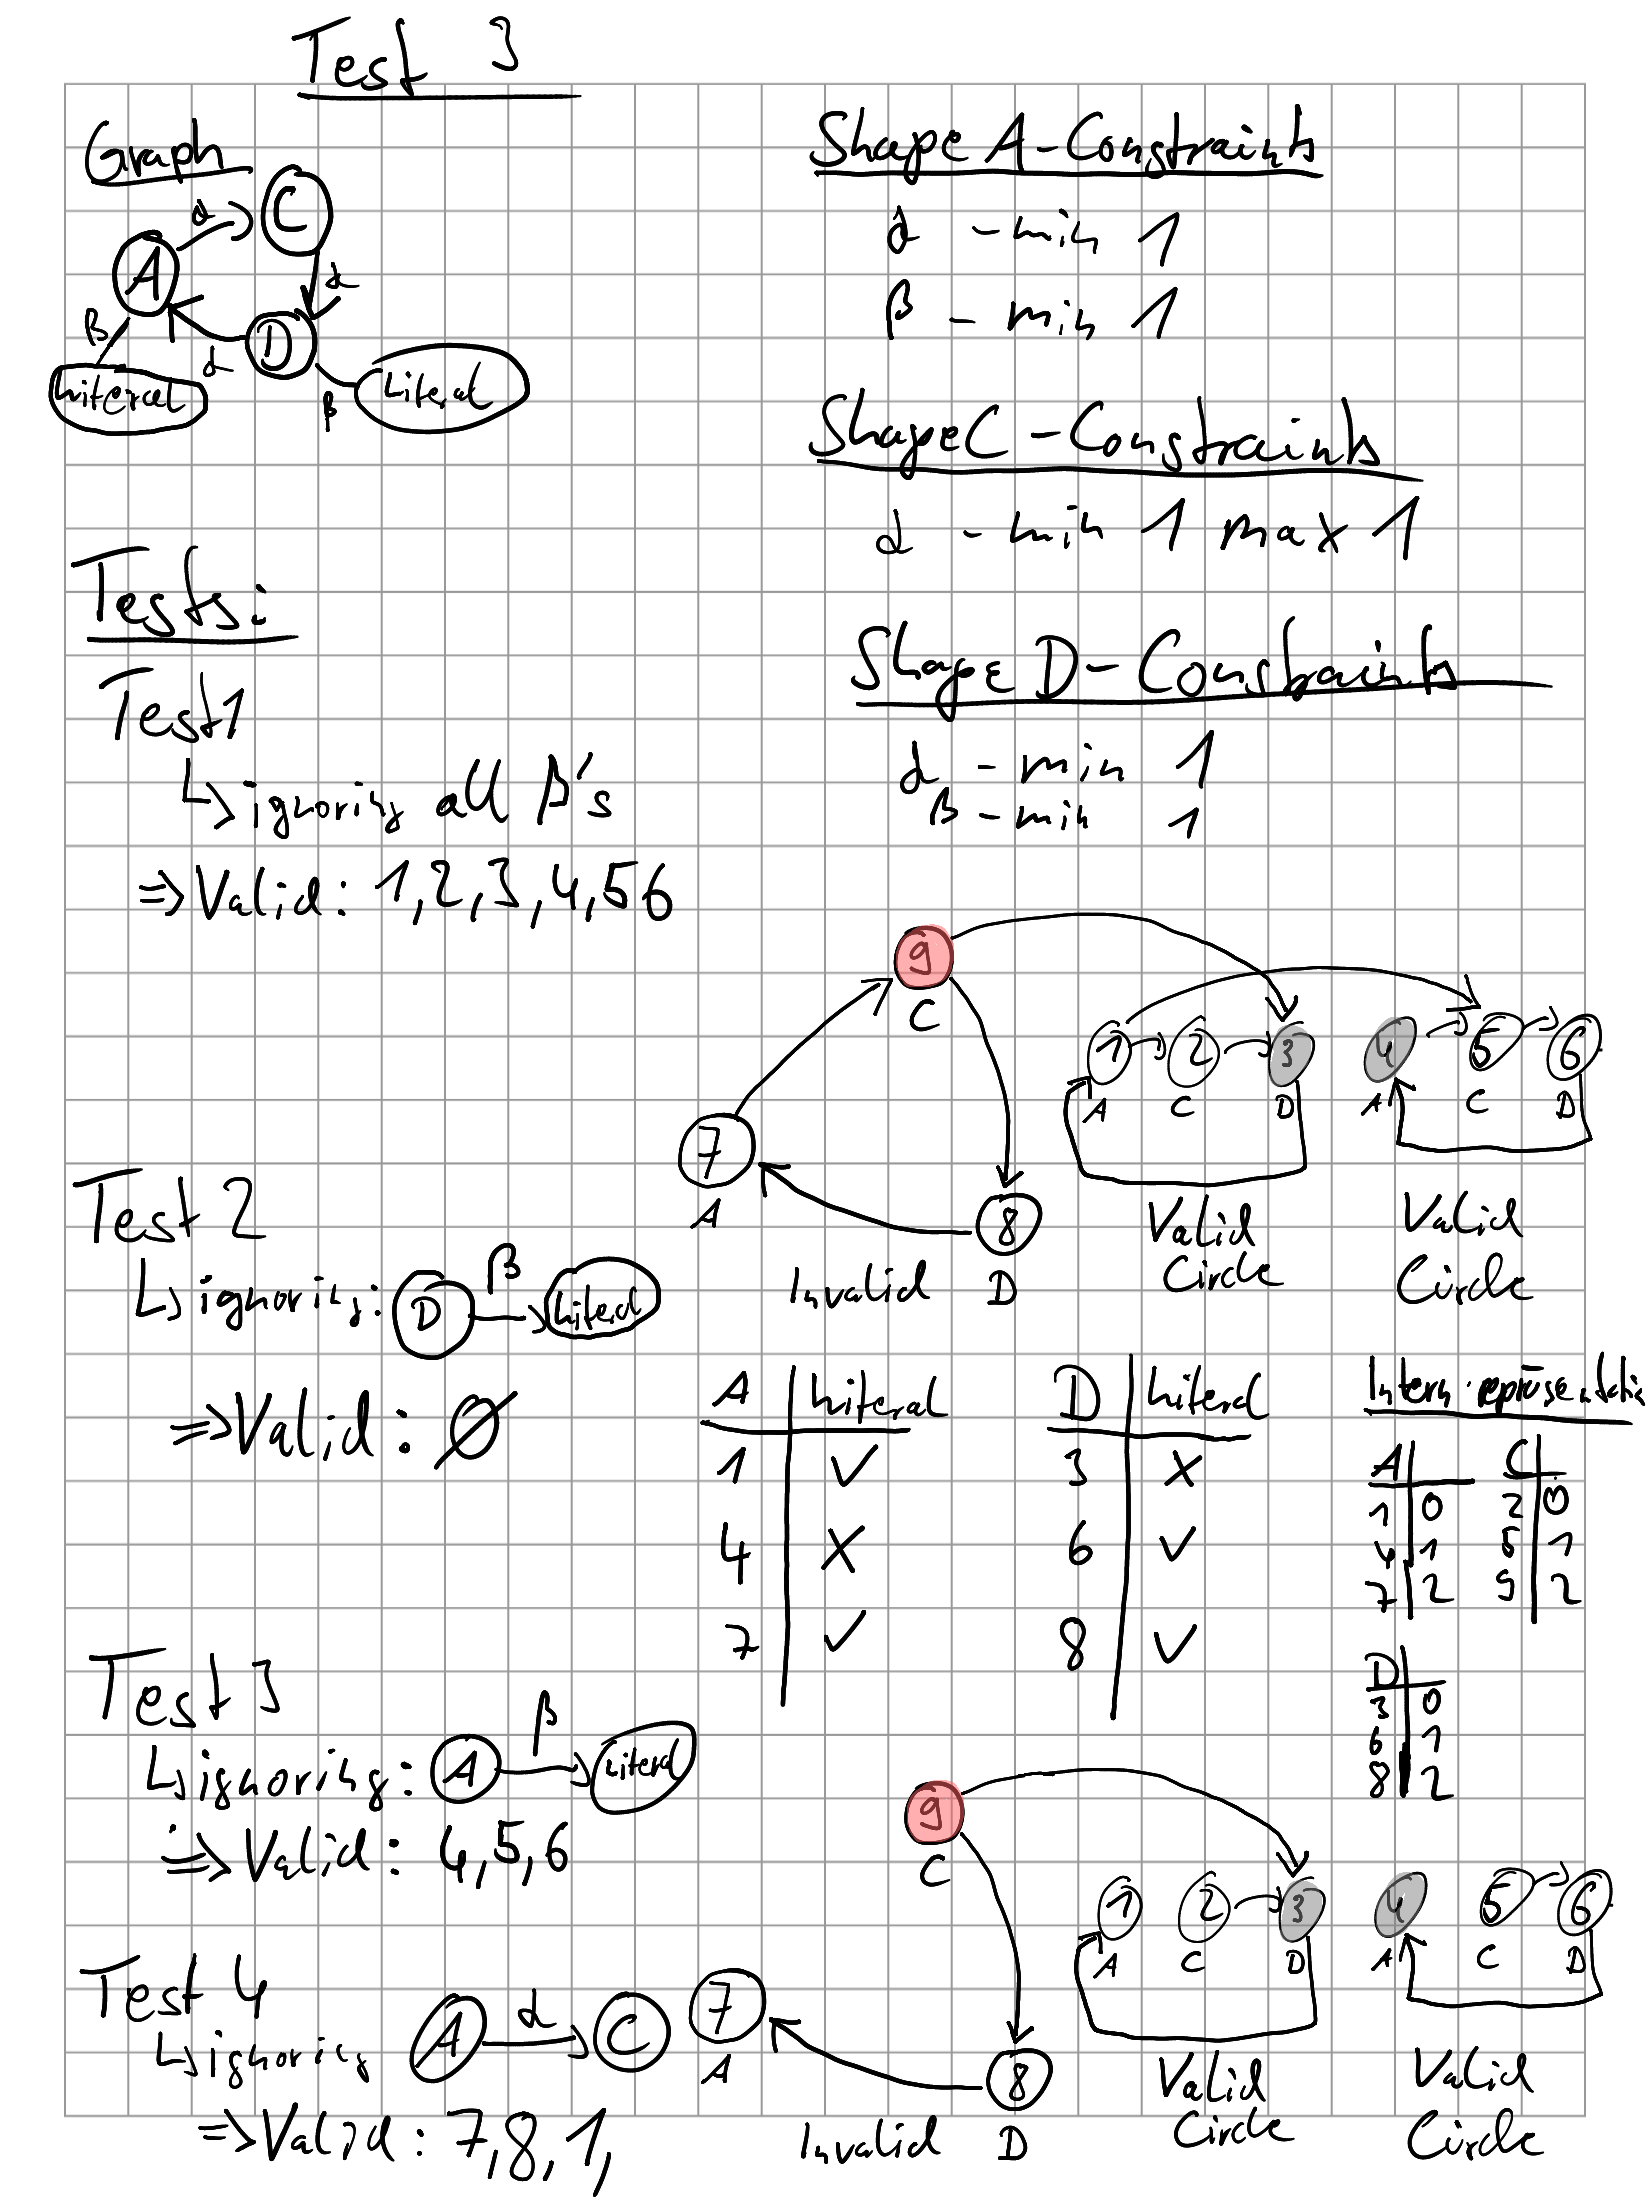 Test 3
Graph
A
α
C
α
D
α
β
Literal
β
Literal
Shape A-Constraints
α - min 1
β - min 1
Shape C-Constraints
α - min 1 max 1
Shape D-Constraints
α - min 1
β - min 1
Tests:
Test 1
↳ ignoring all β's
⇒ Valid: 1,2,3,4,5 6
9
C
7
A
8
D
Invalid
1 2 3
A C D
Valid
Circle
4 5 6
A C D
Valid
Circle
Test 2
↳ ignoring: D β → Literal
⇒ Valid: ∅
A | Literal
1 ✓
4 X
7 ✓
D | Literal
3 X
6 ✓
8 ✓
Intern
A
1 | 0
4 | 1
7 | 2
C
2 | 0
5 | 1
9 | 2
D
3 | 0
6 | 1
8 | 2
Test 3
↳ ignoring: A β → Literal
⇒ Valid: 4,5,6
Test 4
↳ ignoring A α → C
⇒ Valid: 7,8,1,
9
C
7
A
8
D
Invalid
1 2 3
A C D
Valid
Circle
4 5 6
A C D
Valid
Circle